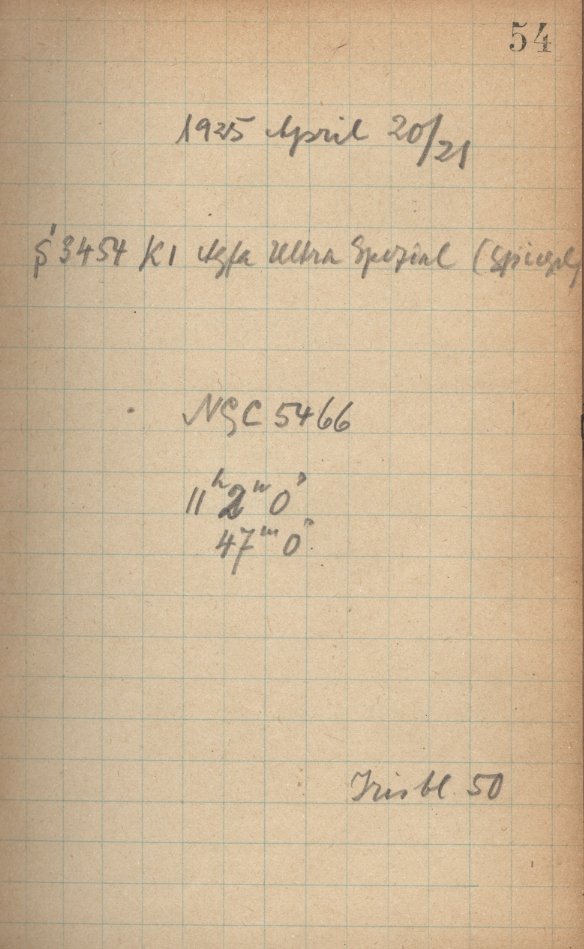 54
1925 April 20/21
S 3454 K1 Agfa Ultra Spezial (Spiegel)
NGC 5466
11h 2m 0s
47m 0s
Irisbl. 50